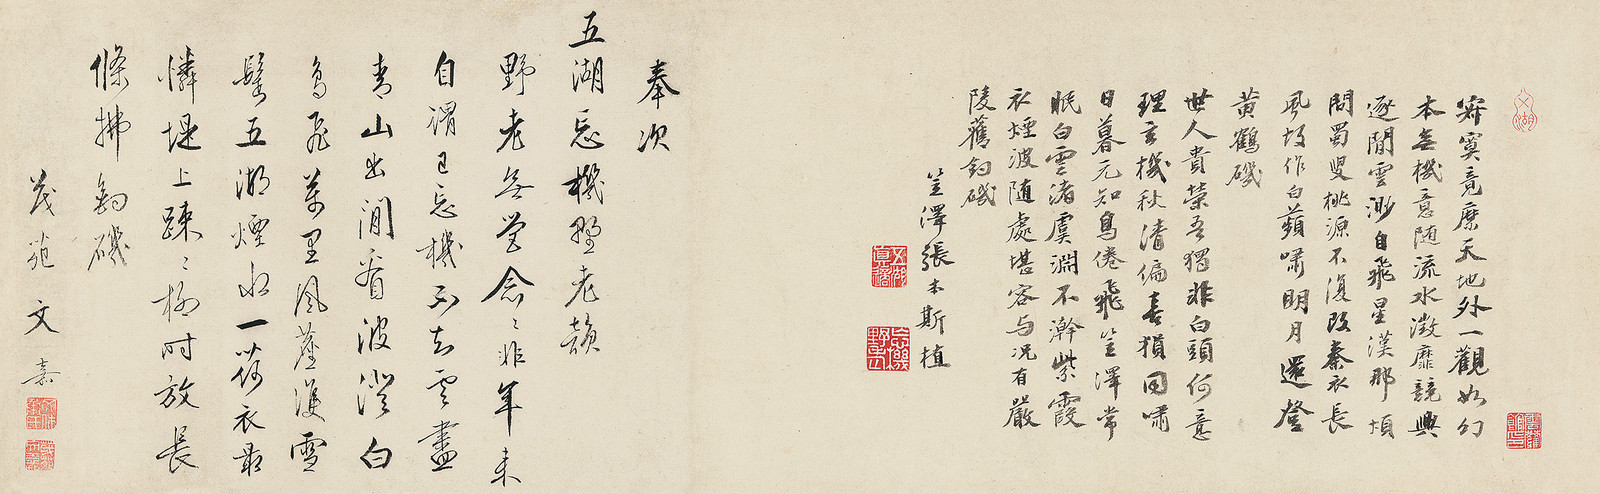 寞竟天地外一觀如幻
本無機意随流水澂靡競興
逐閒雲渺自飛星漢那煩
問蜀叟桃源不復改秦衣長
風故作白蘋嘯明月還登
黄鶴磯
世人貴榮吾獨非白頭何意
理玄機秋清偏喜猨同嘯
日暮元知鳥倦飛笠澤常
眠白雲渚虞淵不澣紫霞
衣煙波随處堪容与况有嚴
陵舊釣磯
笠澤張本斯植
忘機野老
奉次
五湖忘機野老韻
野老無營念念非年来
自謂已忘機不知雲盡
青山出閒看波澄白
鳥飛萬里風塵雙雪
髩五湖煙水一荷衣最
憐堤上踈〻柳時放長
條拂釣磯
茂苑文嘉